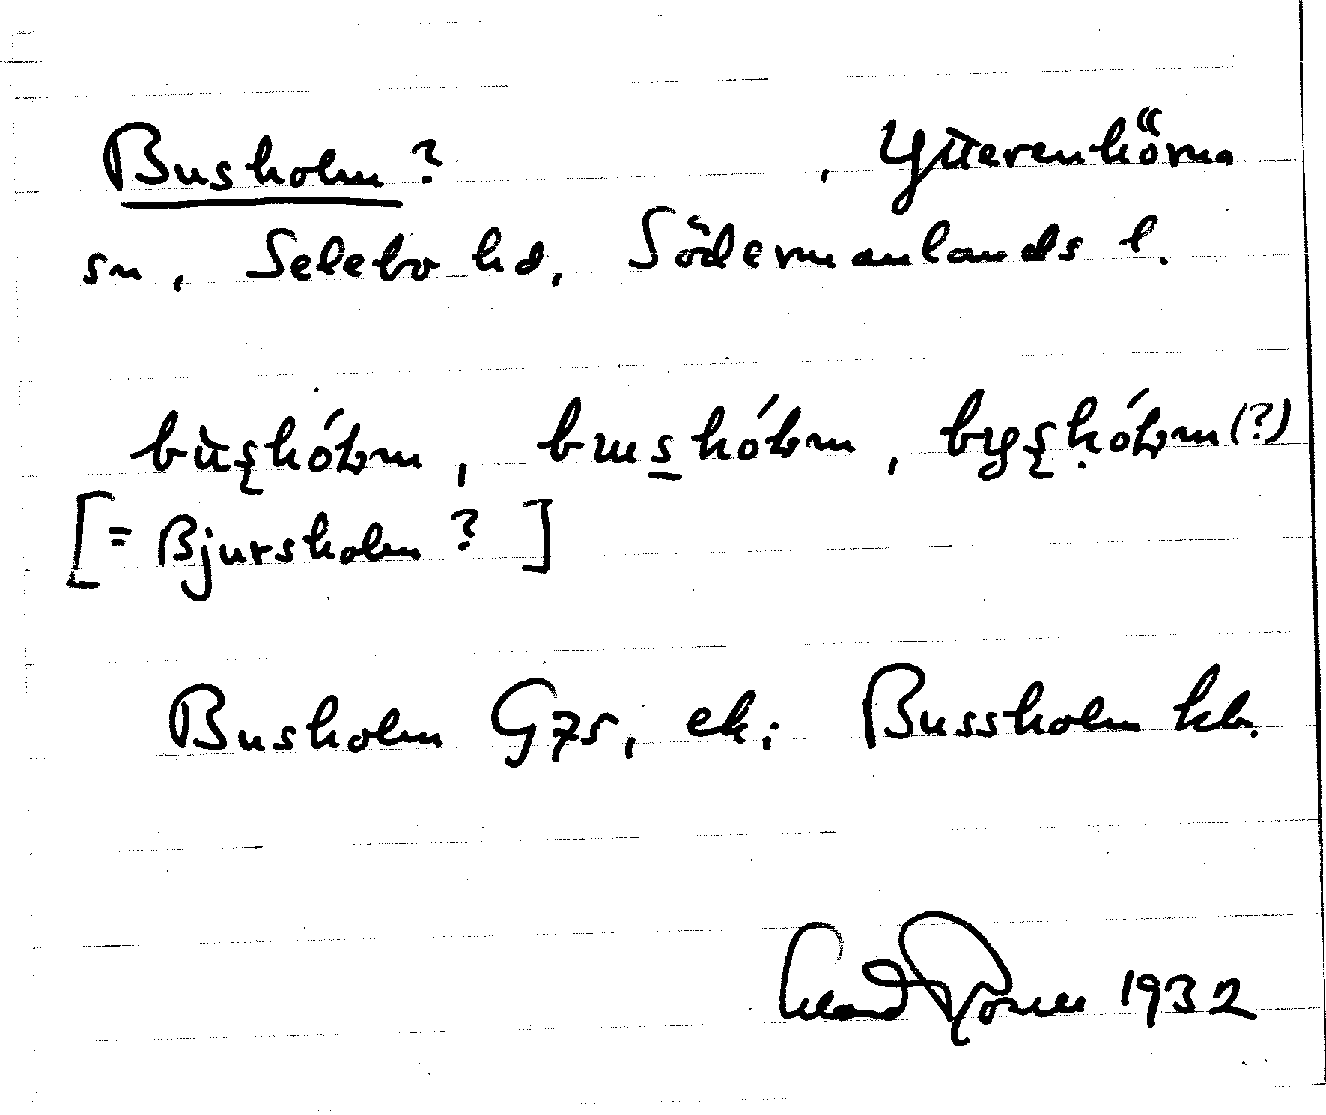 Busholm ? , Ytterenhörna
sn, Selebo hd, Södermanlands l.
bùşhólm, bush́ólm, byşhólm (?)
[= Bjursholm ? ]
Busholm G7s, ek; Bussholm kb.
1932